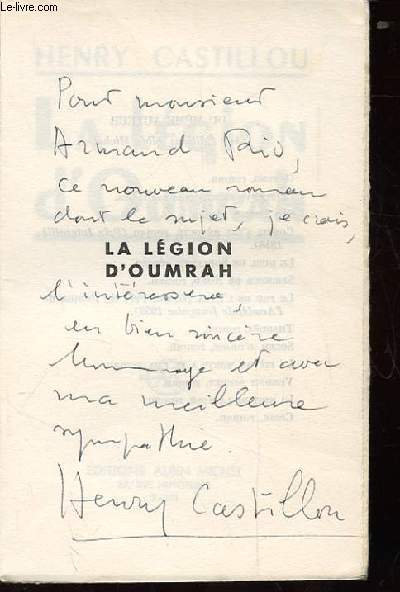 Le-livre.com
Pour monsieur
Armand Prio,
ce nouveau roman
dont le sujet, je crois,
LA LÉGION
D'OUMRAH
l'intéressera,
en bien sincère
hommage et avec
ma meilleure
sympathie.
Henry Castillou